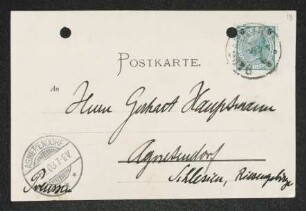 18
POSTKARTE.
An
Herrn Gerhart Hauptmann
Agnetendorf
Schlesien, Riesengebirge
Preussen
AGNETENDORF